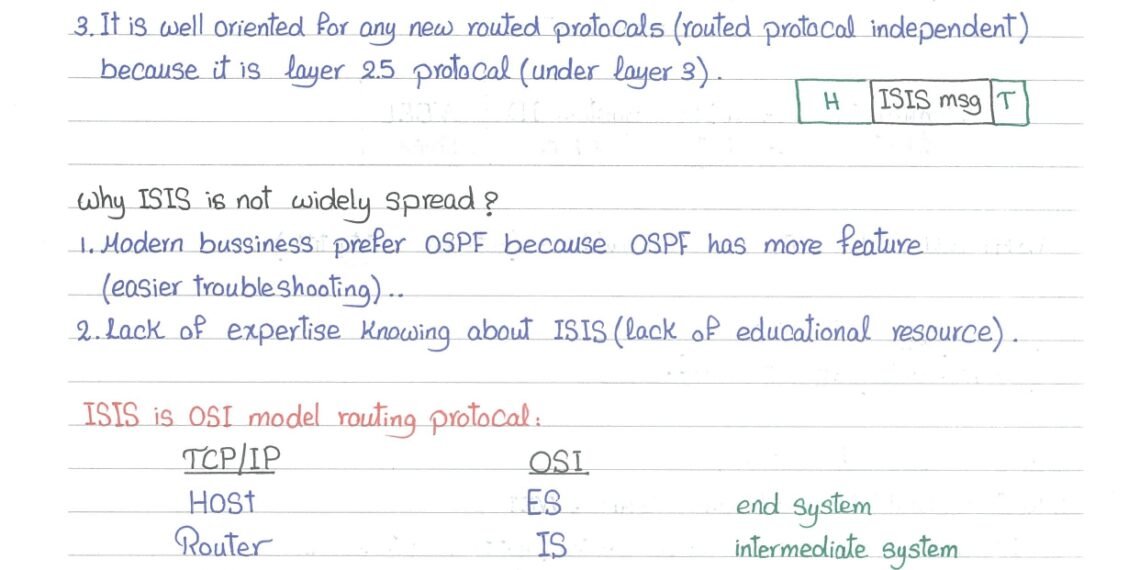 3. It is well oriented for any new routed protocals (routed protocal independent)
because it is layer 2.5 protocal (under layer 3).
H ISIS msg T
why ISIS is not widely spread?
1. Modern bussiness prefer OSPF because OSPF has more feature
(easier troubleshooting)..
2. Lack of expertise Knowing about ISIS (lack of educational resource).
ISIS is OSI model routing protocal:
TCP/IP OSI
Host ES end system
Router IS intermediate system